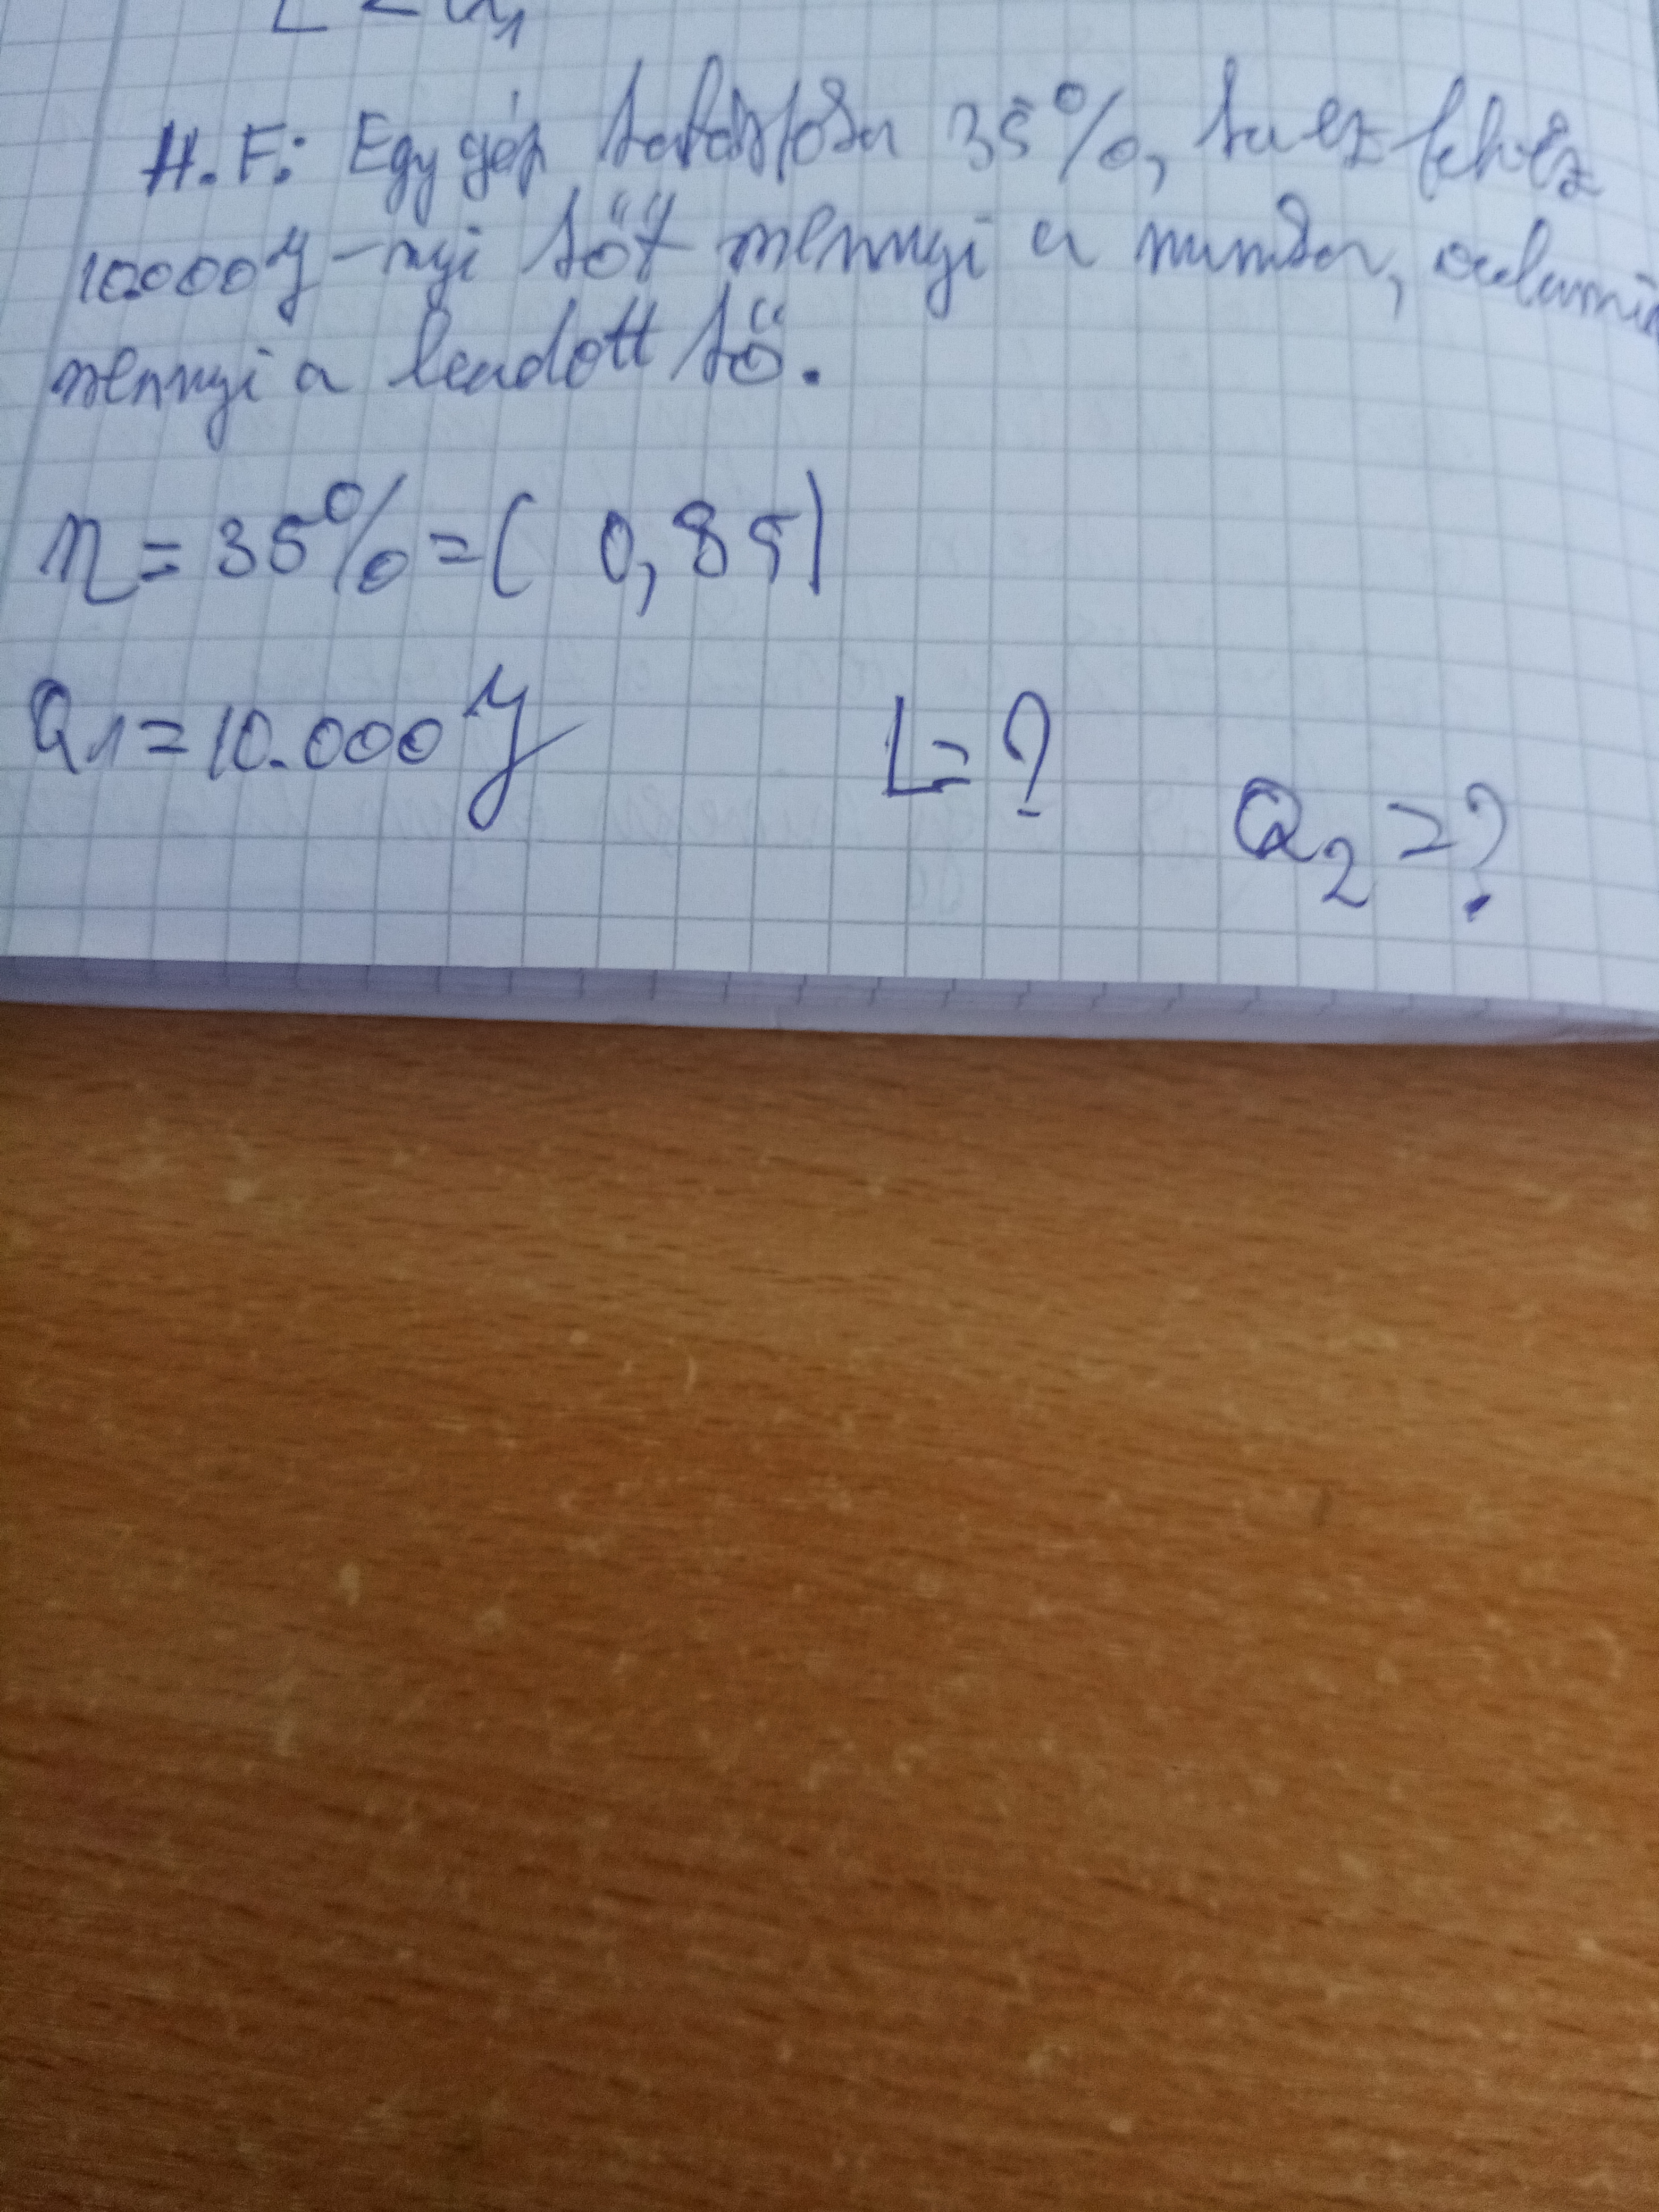 H.F.: Egy gép hatásfoka 35%, ha ez felvesz
10.000 J-nyi hőt mennyi a munka, valami
mennyi a leadott hő.
η = 35% = ( 0,35)
Q1 = 10.000 J L = ?
Q2 = ?